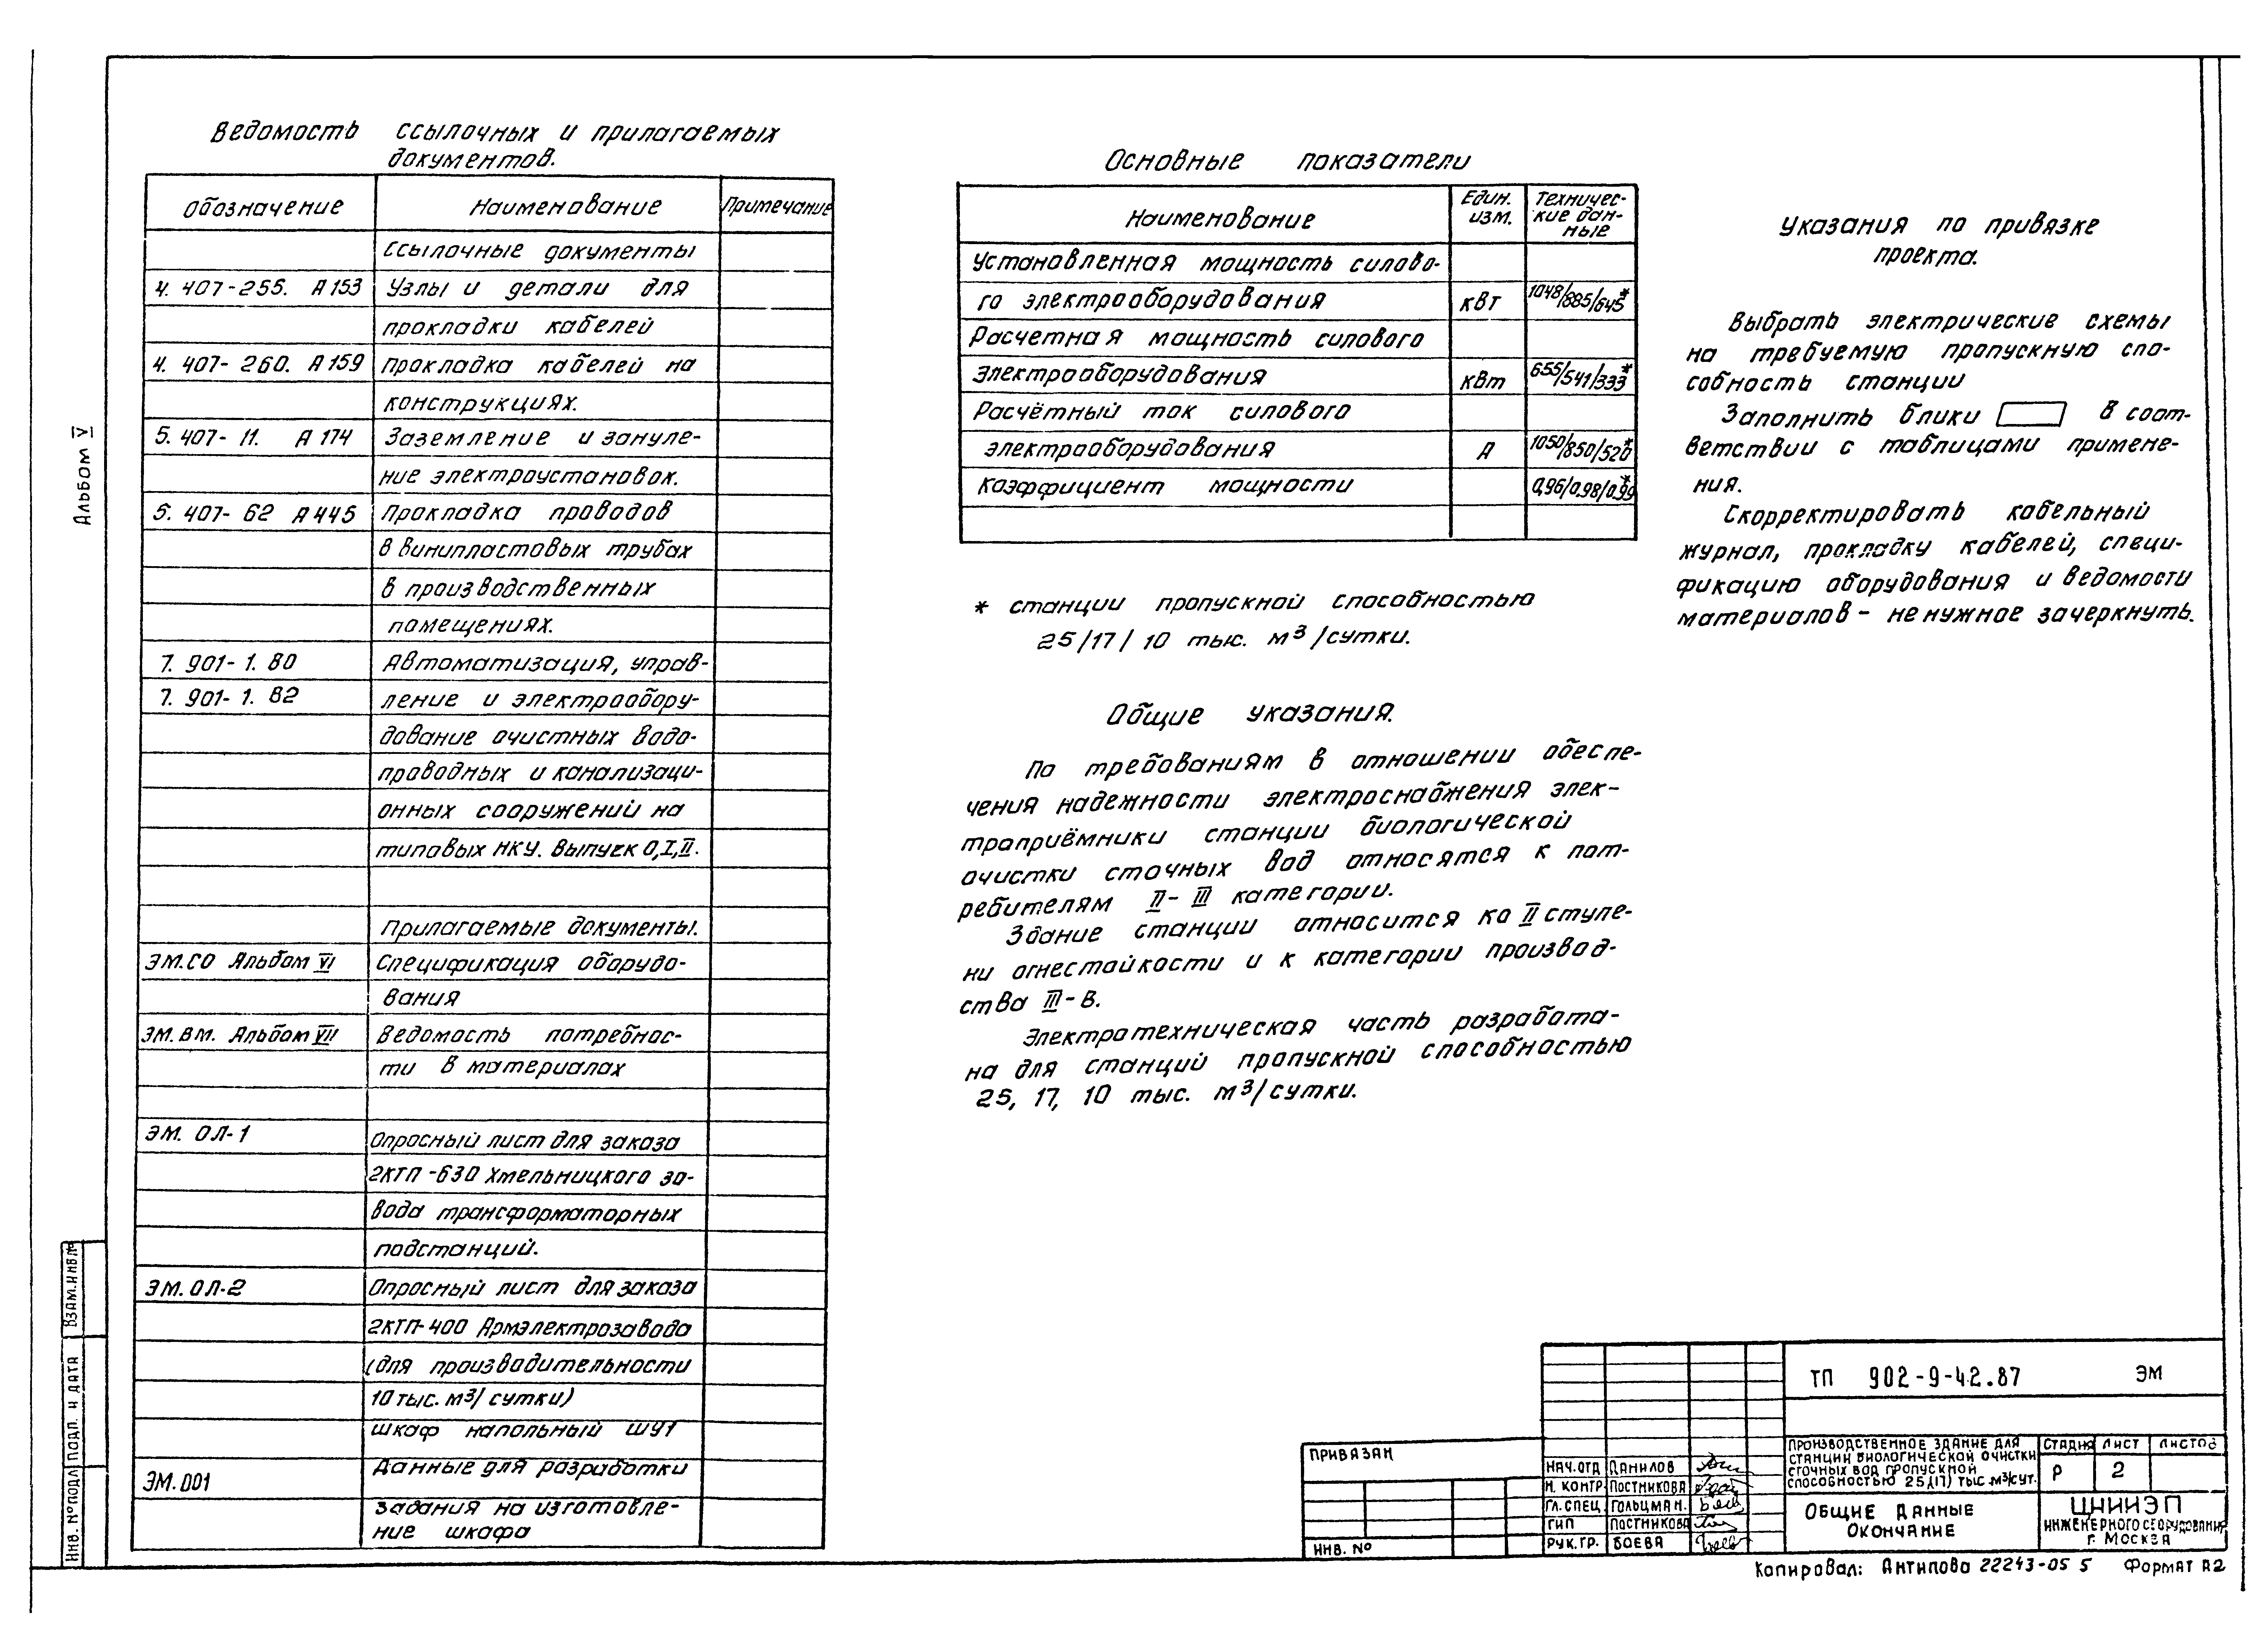 Альбом V
Ведомость ссылочных и прилагаемых
документов.
Обозначение Наименование Примечание
Ссылочные документы
4. 407-255. А153 Узлы и детали для
прокладки кабелей
4. 407-260. А159 Прокладка кабелей на
конструкциях.
5. 407-11. А174 Заземление и зануле-
ние электроустановок.
5. 407-62 А445 Прокладка проводов
в винипластовых трубах
в производственных
помещениях.
7. 901-1. 80 Автоматизация, управ-
7. 901-1. 82 ление и электрообору-
дование очистных водо-
проводных и канализаци-
онных сооружений на
типовых НКУ. Выпуск 0, I, II.
Прилагаемые документы.
ЭМ.СО Альбом VI Спецификация оборудо-
вания
ЭМ.ВМ. Альбом VII Ведомость потребнос-
ти в материалах
ЭМ. ОЛ-1 Опросный лист для заказа
2КТП-630 Хмельницкого за-
вода трансформаторных
подстанций.
ЭМ. ОЛ-2 Опросный лист для заказа
2КТП-400 Армэлектрозавода
(для производительности
10 тыс. м³/сутки)
шкаф напольный ШУ1
ЭМ.001 Данные для разработки
задания на изготовле-
ние шкафа
Основные показатели
Наименование Един. изм. Техничес-
кие дан-
ные
Установленная мощность силово-
го электрооборудования кВт 1048/885/645*
Расчетная мощность силового
электрооборудования кВт 655/541/333*
Расчётный ток силового
электрооборудования А 1050/850/520*
Коэффициент мощности 0,96/0.98/0.99*
* станции пропускной способностью
25/17/10 тыс. м³/сутки.
Общие указания.
По требованиям в отношении обеспе-
чения надежности электроснабжения элек-
троприёмники станции биологической
очистки сточных вод относятся к пот-
ребителям II-III категории.
Здание станции относится ко II ступе-
ни огнестойкости и к категории производ-
ства III-В.
Электротехническая часть разработа-
на для станций пропускной способностью
25, 17, 10 тыс. м³/сутки.
Указания по привязке
проекта.
Выбрать электрические схемы
на требуемую пропускную спо-
собность станции
Заполнить блики в соот-
ветствии с таблицами примене-
ния.
Скорректировать кабельный
журнал, прокладку кабелей, специ-
фикацию оборудования и ведомости
материалов - не нужное зачеркнуть.
Взам.инв.№
Подп. и дата
Инв. № подл
Привязан
Инв. №
Нач.отд Данилов
Н. контр Постникова
Гл.спец Гольцман.
ГИП Постникова
Рук.гр. Боева
ТП 902-9-42.87 ЭМ
Производственное здание для
станции биологической очистки
сточных вод пропускной
способностью 25,(17) тыс.м³/сут.
Стадия Лист Листов
Р 2
Общие данные
Окончание
ЦНИИЭП
инженерного оборудования
г. Москва
Копировал: Антипова 22243-05 5 Формат А2